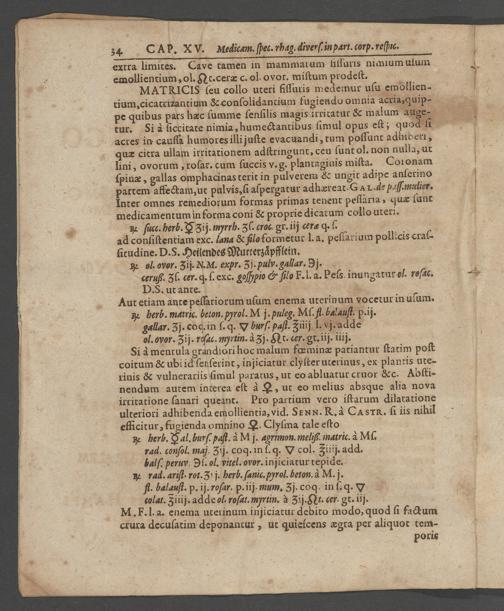 34 CAP. XV. Medicam. spec. rhag. divers. in part. corp. respic.
extra limites. Cave tamen in mammarum fissuris nimium usum
emollientium, ol. ☊ t. ceræ c. ol. ovor. mistum prodest.
MATRICIS seu collo uteri fissuris medemur usu emollien-
tium, cicatrizantium & consolidantium fugiendo omnia acria, quip-
pe quibus pars hæc summe sensilis magis irritatur & malum auge-
tur. Si à siccitate nimia, humectantibus simul opus est; quod si
acres in caussa humores illi juste evacuandi, tum possunt adhiberi,
quæ citra ullam irritationem adstringunt, ceu sunt ol. non nulla, ut
lini, ovorum, rosar. cum succis v. g. plantaginis mista. Coronam
spinæ, gallas omphacinas terit in pulverem & ungit adipe anserino
partem affectam, ut pulvis, si aspergatur adhæreat GAL. de pass. mulier.
Inter omnes remediorum formas primas tenent pessaria, quæ sunt
medicamentum in forma coni & proprie dicatum collo uteri.
℞ succ. herb. ☿ ʒij. myrrh. ʒs. croc. gr. iij ceræ q. s.
ad consistentiam exc. lana & filo formetur l. a. pessarium pollicis cras-
situdine. D. S. Heilendes Mutterzäpfflein.
℞ ol. ovor. ʒij. N.M. expr. ʒj. pulv. gallar. ℈j.
ceruss. ʒs. cer. q. s. exc. gossypio & filo F. l. a. Pess. inungatur ol. rosac.
D. S. ut ante.
Aut etiam ante pessariorum usum enema uterinum vocetur in usum.
℞ herb. matric. beton. pyrol. M j. puleg. Ms. fl. balaust. p. ij.
gallar. ʒj. coq. in s. q. ▽ burs. past. ℥iiij. l. vj. adde
ol. ovor. ʒij. rosac. myrtin. à ʒj. ☊ t. cer. gt. iij. iiij.
Si à mentula grandiori hoc malum fœminæ patiantur statim post
coitum & ubi id senserint, injiciatur clyster uterinus, ex plantis ute-
rinis & vulnerariis simul paratus, ut eo abluatur cruor &c. Absti-
nendum autem interea est à ♀, ut eo melius absque alia nova
irritatione sanari queant. Pro partium vero istarum dilatatione
ulteriori adhibenda emollientia, vid. SENN. R. à CASTR. si iis nihil
efficitur, fugienda omnino ♀. Clysma tale esto
℞ herb. ☿ al. burs. past. à M j. agrimon. meliss. matric. à Ms.
rad. consol. maj. ʒij. coq. in s. q. ▽ col. ℥iiij. add.
bals. peruv. ℈s. ol. vitel. ovor. injiciatur tepide.
℞ rad. arist. rot. ʒij. herb. sanic. pyrol. beton. à M. j.
fl. balaust. p. ij. rosar. p. iij. mum. ʒj. coq. in s. q. ▽
colat. ℥iiij. adde ol. rosat. myrtin. à ʒij. ☊ t. cer. gt. iij.
M. F. l. a. enema uterinum injiciatur debito modo, quod si factum
crura decusatim deponantur, ut quiescens ægra per aliquot tem-
poris